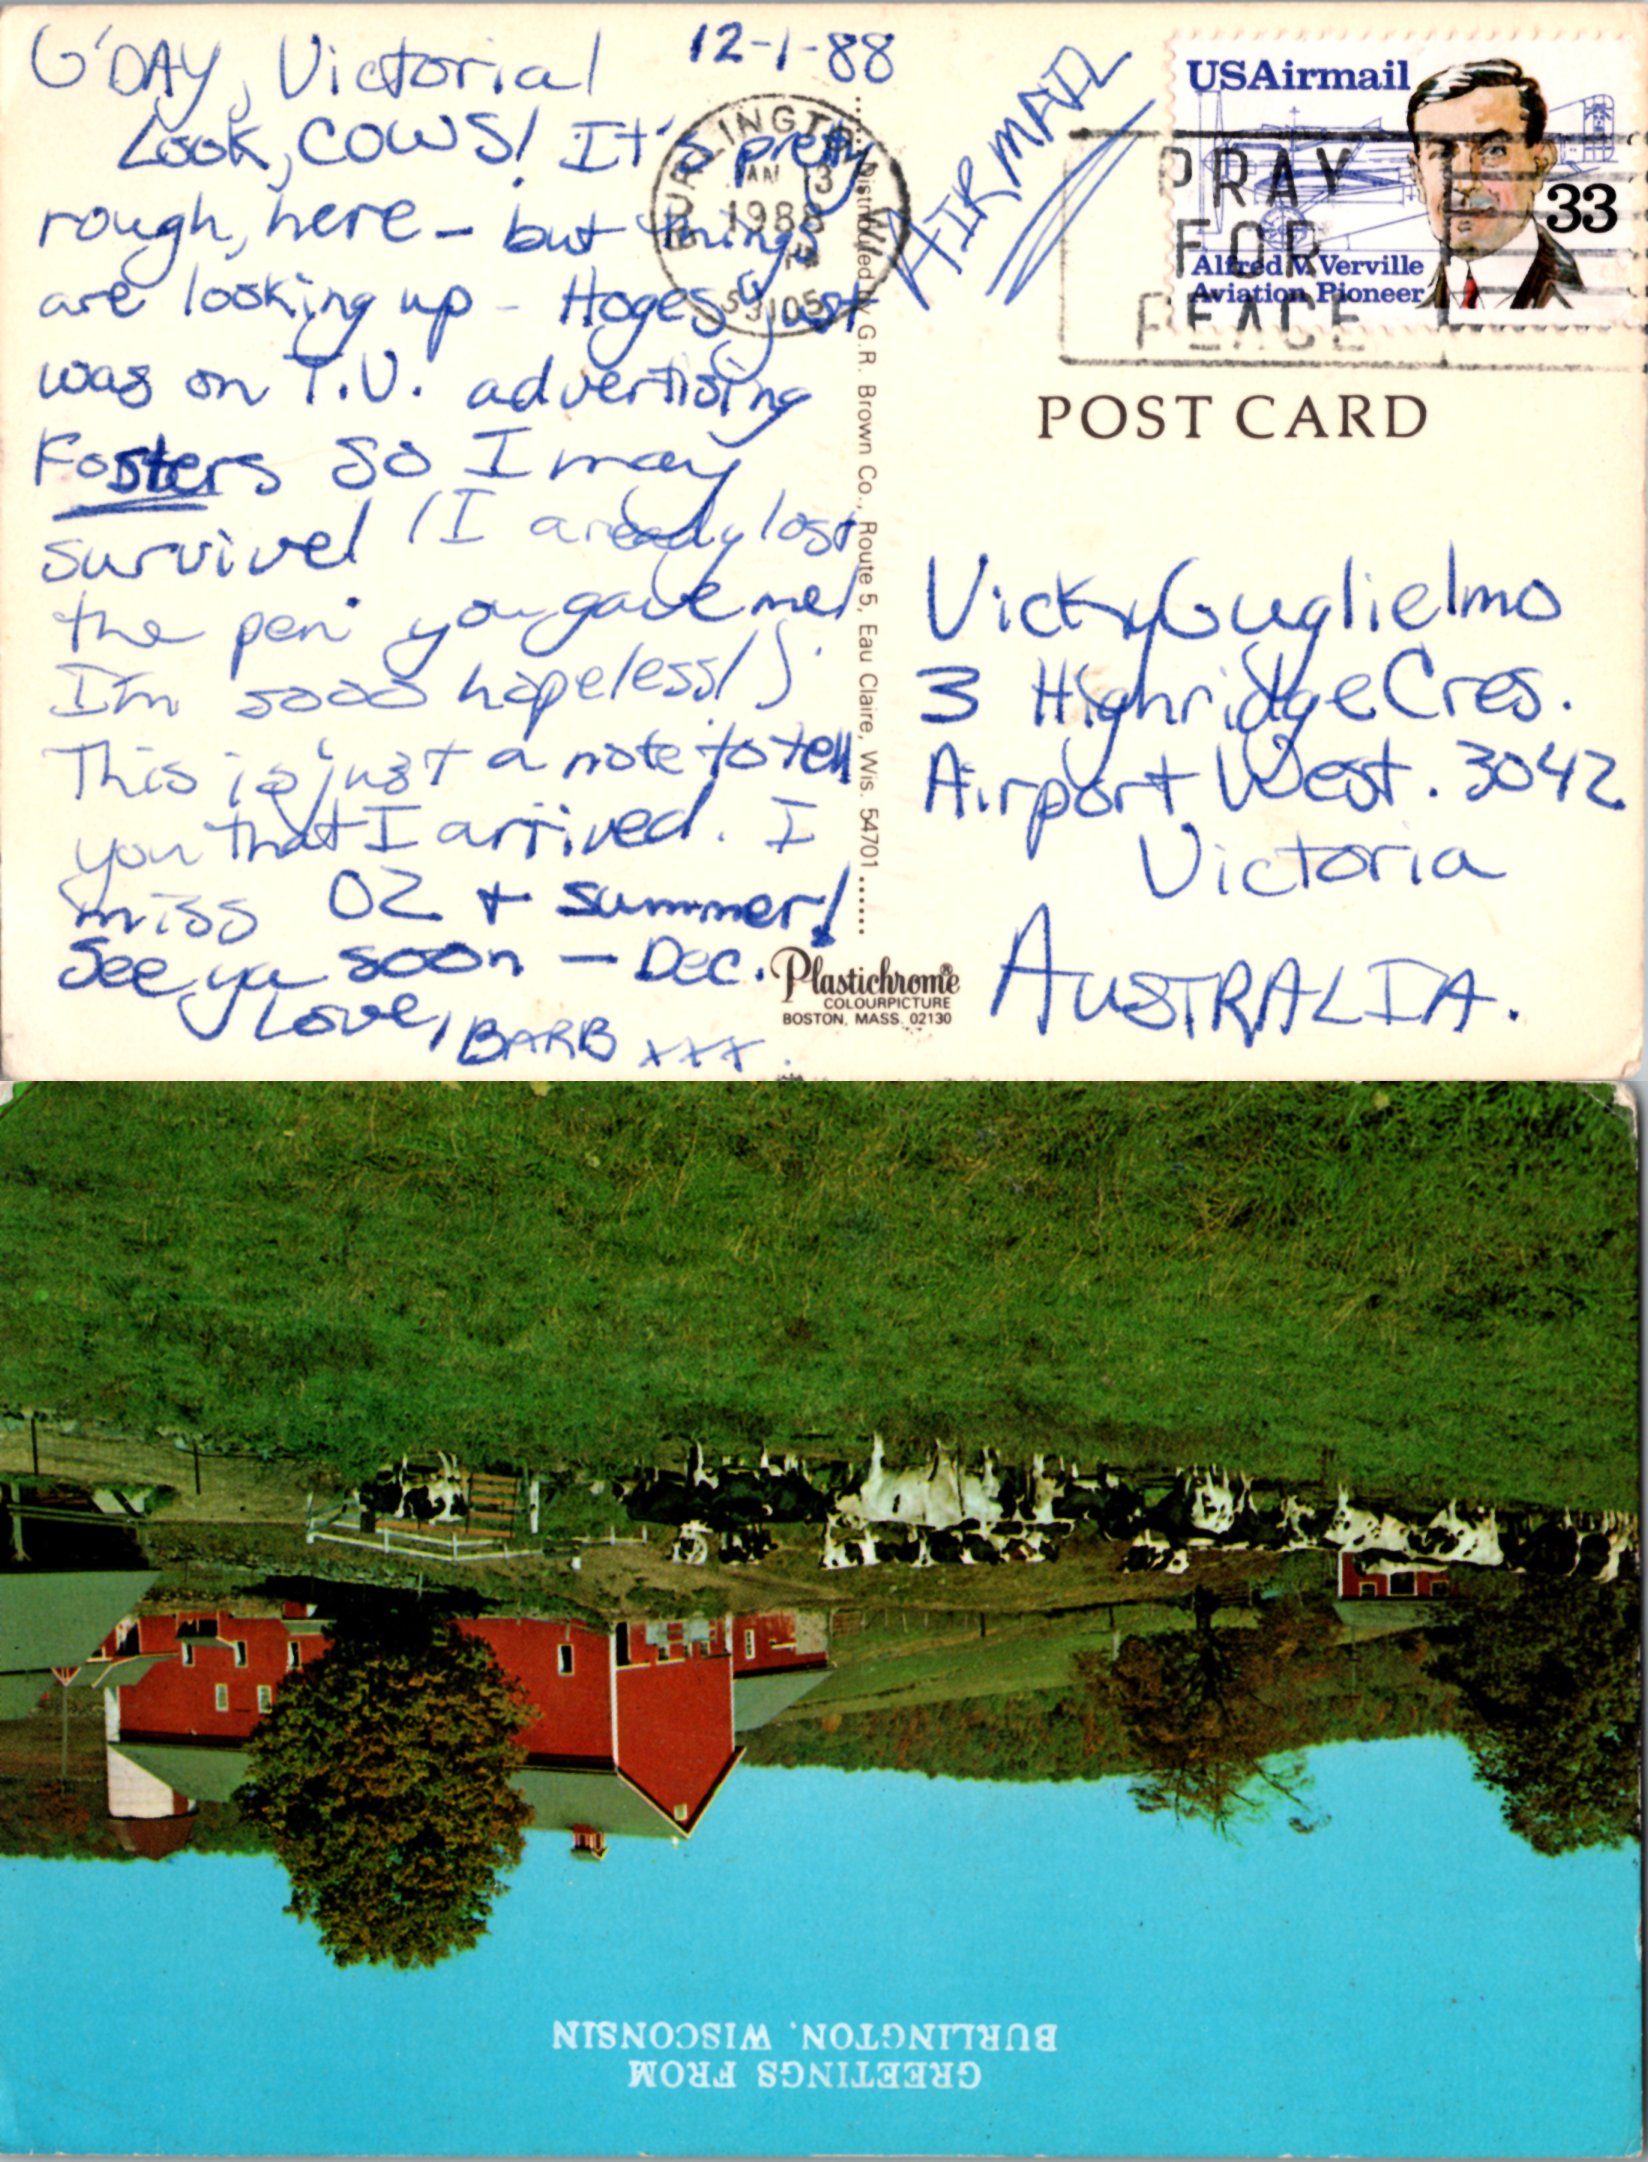 12-1-88
G'DAY, Victoria!
Look, COWS! It's pretty
rough, here – but things
are looking up – Hoges just
was on T.V. advertising
Fosters so I may
survive! (I aready lost
the pen you gave me!
I'm sooo hopeless!).
This is just a note to tell
you that I arrived. I
miss OZ + summer!
See ya soon – Dec.
Love, BARB xxx.
BURLINGTON, WI
JAN 13
1988
PM
53105
AIRMAIL
USAirmail
33
Alfred V. Verville
Aviation Pioneer
PRAY
FOR
PEACE
POST CARD
Distributed by G.R. Brown Co., Route 5, Eau Claire, Wis. 54701
Vicky Guglielmo
3 Highridge Cres.
Airport West. 3042
Victoria
AUSTRALIA.
Plastichrome®
COLOURPICTURE
BOSTON, MASS. 02130
GREETINGS FROM
BURLINGTON, WISCONSIN